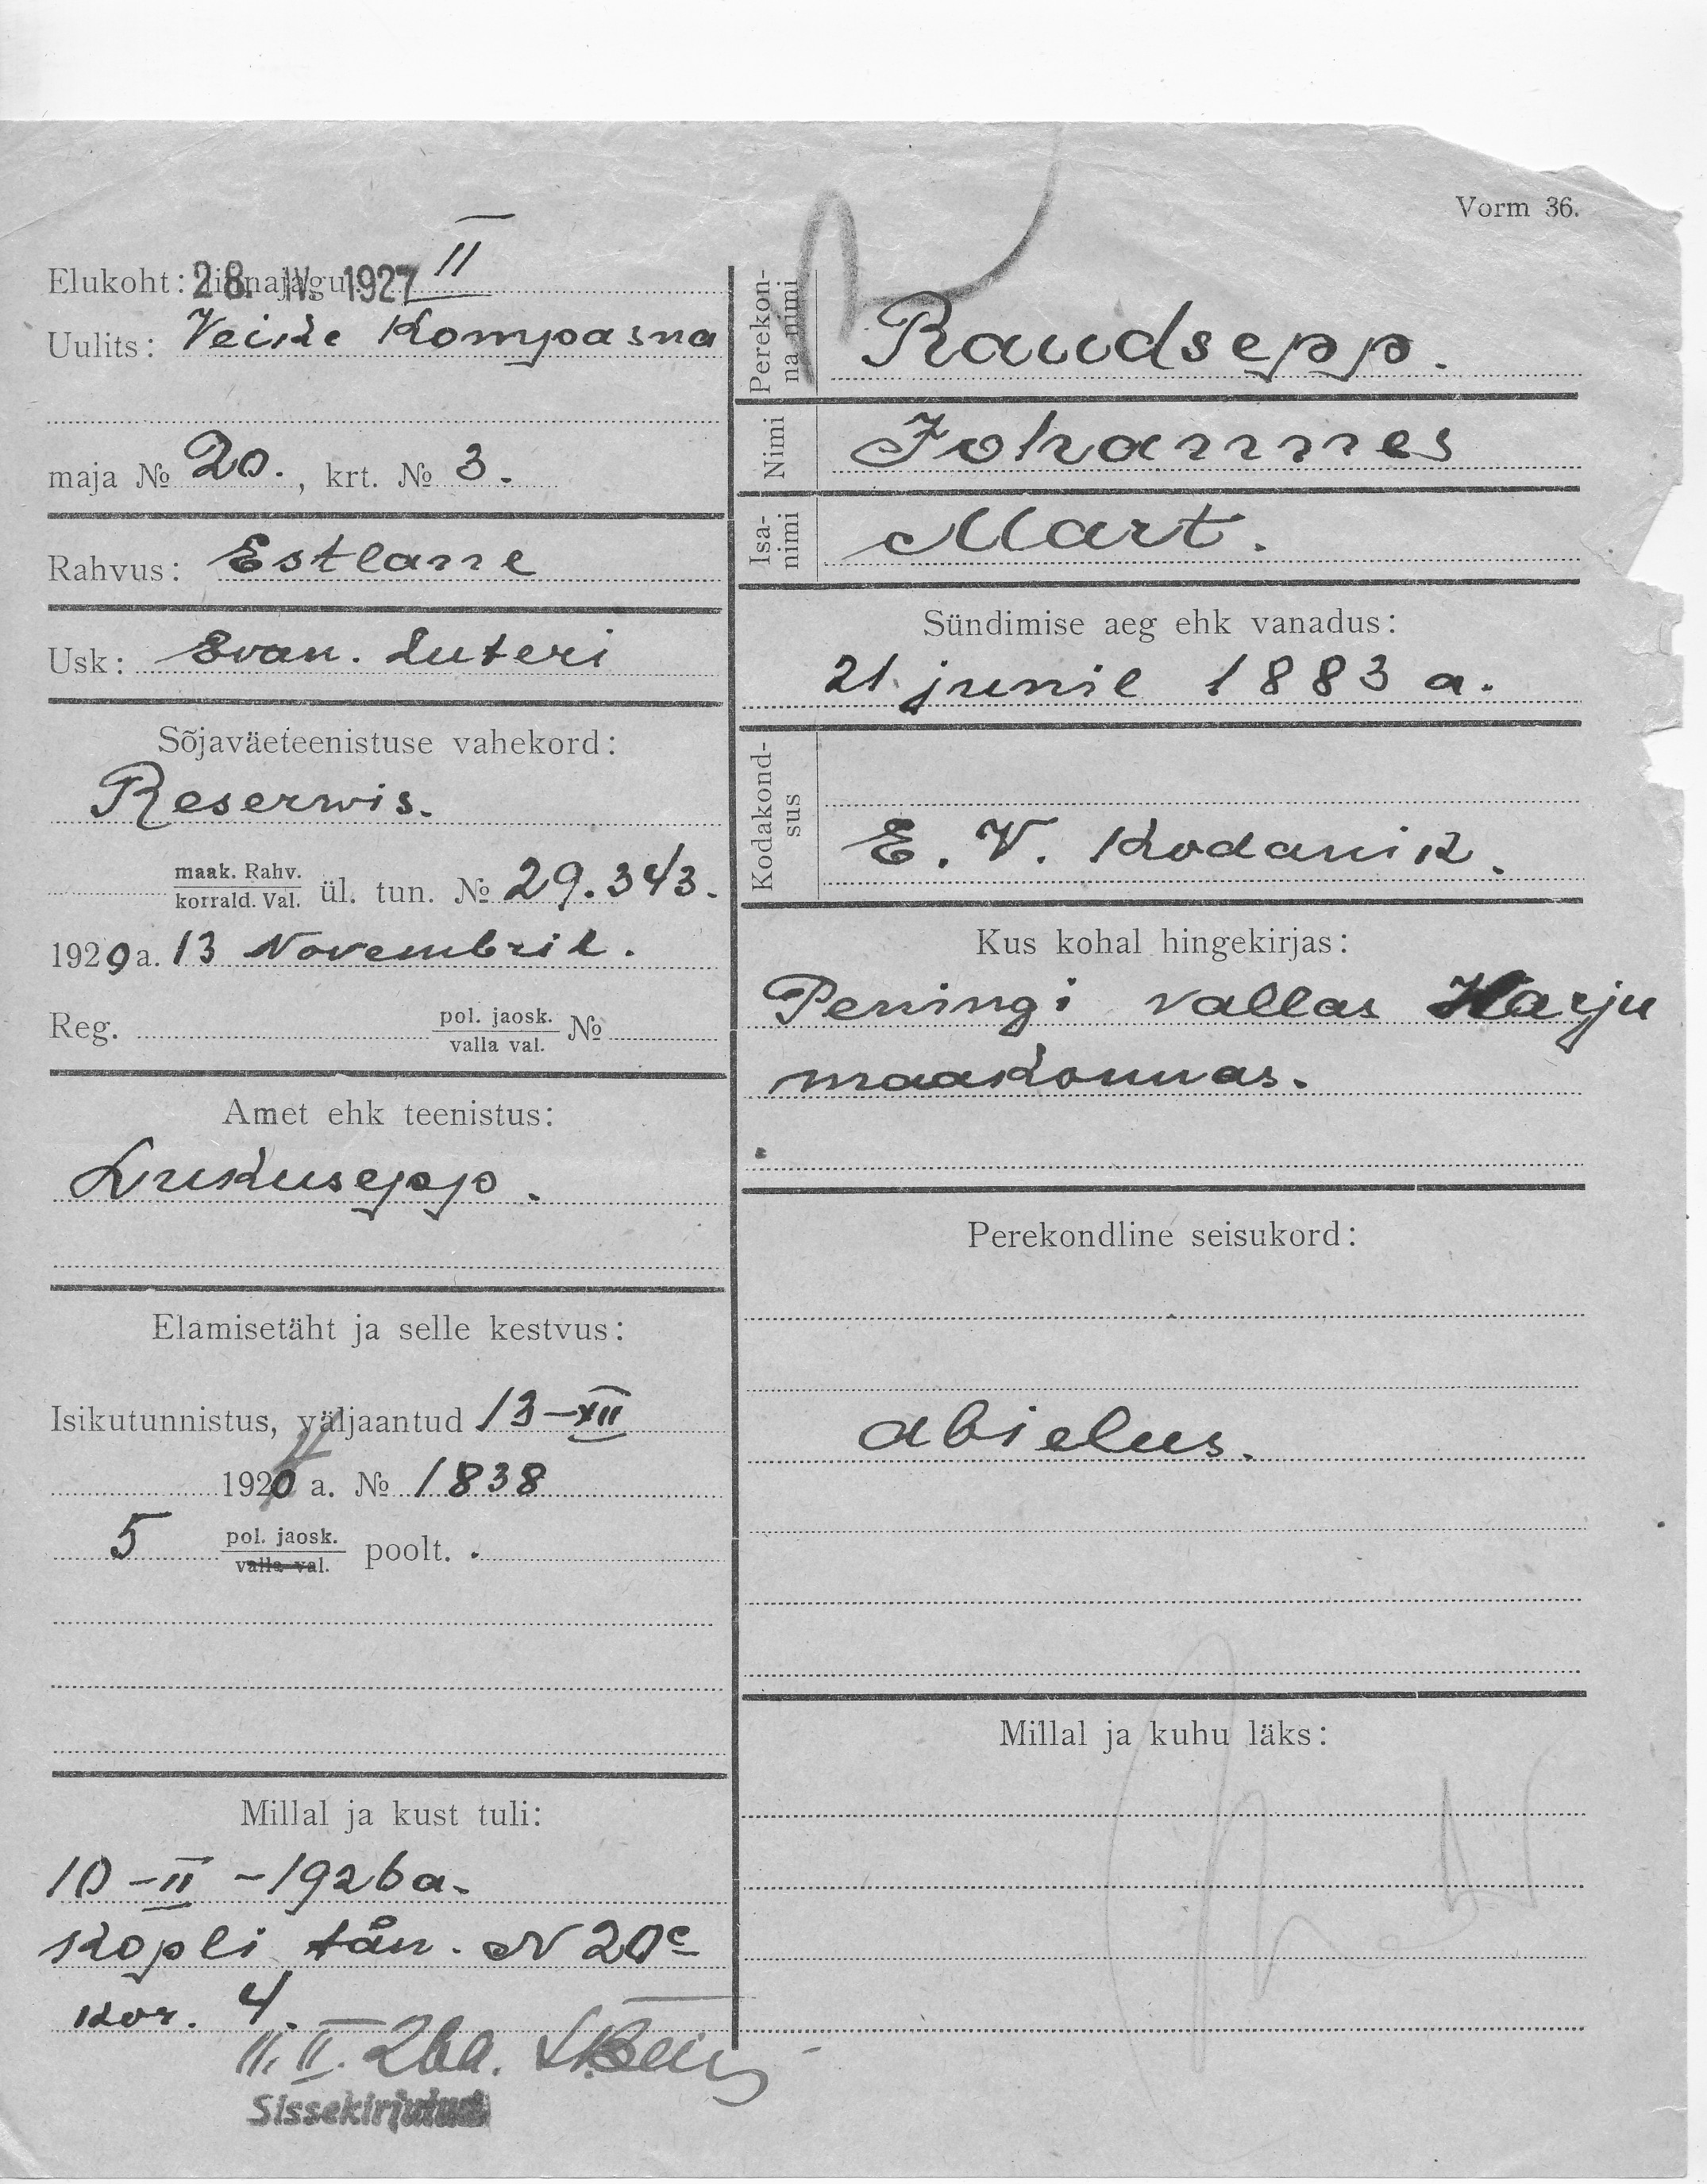 Vorm 36.
Elukoht: linnajagu II
28. IV. 1927
Uulits: Veike Kompasna
maja № 20., krt. № 3.
Rahvus: Estlane
Usk: Evan. Luteri
Sõjaväeteenistuse vahekord:
Reserwis.
maak. Rahv.
korrald. Val. ül. tun. № 29.343.
1920 a. 13 Novembril.
Reg. pol. jaosk.
valla val. №
Amet ehk teenistus:
Lukusepp.
Elamisetäht ja selle kestvus:
Isikutunnistus, väljaantud 13-XII
1920 a. № 1838
5 pol. jaosk.
valla val. poolt.
Millal ja kust tuli:
10-II-1926a.
Kopli tän. N 20c
kor. 4.
11. II. 26a.
Sissekirjutud
Perekonna nimi
Raudsepp.
Nimi
Johannes
Isanimi
Mart.
Sündimise aeg ehk vanadus:
21 junil 1883 a.
Kodakondsus
E. V. Kodanik.
Kus kohal hingekirjas:
Peningi vallas Harju
maakonnas.
Perekondline seisukord:
abielus.
Millal ja kuhu läks: